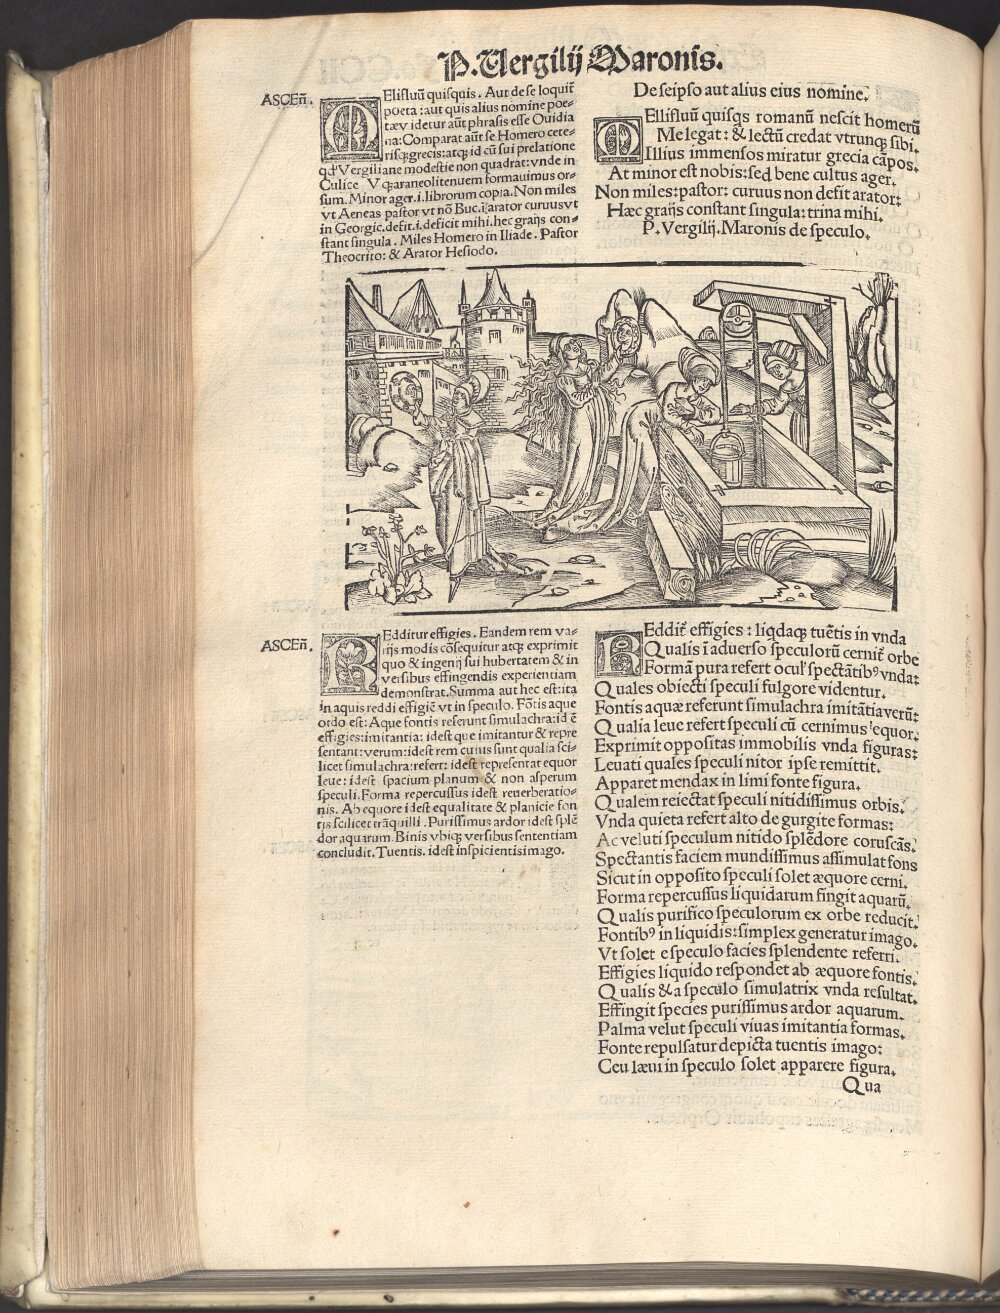 P. Vergilij Maronis.
ASCEñ.
MElifluũ quisquis. Aut de se loquit̃
poeta: aut quis alius nomine poe-
tæ v idetur aũt phrasis esse Ouidia
na: Comparat aũt se Homero cete-
risq; grecis: atq; id cũ sui prelatione
qđ Vergiliane modestie non quadrat: vnde in
Culice V q; araneoli tenuem formauimus or-
sum. Minor ager. i. librorum copia. Non miles
vt Aeneas pastor vt nõ Buc. i: arator curuus vt
in Georgic. defit. i. deficit mihi. hec graijs con-
stant singula. Miles Homero in Iliade. Pastor
Theocrito: & Arator Hesiodo.
De seipso aut alius eius nomine.
MEllifluũ quisqs romanũ nescit homerũ
Me legat: & lectũ credat vtrunq; sibi.
Illius immensos miratur grecia cãpos.
At minor est nobis: sed bene cultus ager.
Non miles: pastor: curuus non defit arator:
Hæc graijs constant singula: trina mihi.
P. Vergilij. Maronis de speculo.
ASCEñ.
REdditur effigies. Eandem rem va-
rijs modis cõsequitur atq; exprimit
quo & ingenij sui hubertatem & in
versibus effingendis experientiam
demonstrat. Summa aut hec est: ita
in aquis reddi effigiẽ vt in speculo. Fõtis aque
ordo est: Aque fontis referunt simulachra: id ẽ
effigies: imitantia: idest que imitantur & repre
sentant: verum: idest rem cuius sunt qualia sci-
licet simulachra: refert: idest representat equor
leue: idest spacium planum & non asperum
speculi. Forma repercussus idest reuerberatio-
nis. Ab equore idest equalitate & planicie fon
tis scilicet trãquilli. Purissimus ardor idest splẽ
dor aquarum. Binis vbiq; versibus sententiam
concludit. Tuentis. idest inspicientis imago.
REddit̃ effigies: liqdaq; tuẽtis in vnda
Qualis ĩ aduerso speculorũ cernit̃ orbe
Formã pura refert ocul' spectãtib⁹ vnda:
Quales obiecti speculi fulgore videntur.
Fontis aquæ referunt simulachra imitãtia verũ:
Qualia leue refert speculi cũ cernimus equor.
Exprimit oppositas immobilis vnda figuras:
Leuati quales speculi nitor ipse remittit.
Apparet mendax in limi fonte figura.
Qualem reiectat speculi nitidissimus orbis.
Vnda quieta refert alto de gurgite formas:
Ac veluti speculum nitido splẽdore coruscãs.
Spectantis faciem mundissimus assimulat fons
Sicut in opposito speculi solet æquore cerni.
Forma repercussus liquidarum fingit aquarũ.
Qualis purifico speculorum ex orbe reducit.
Fontib⁹ in liquidis: simplex generatur imago.
Vt solet e speculo facies splendente referri.
Effigies liquido respondet ab æquore fontis.
Qualis & a speculo simulatrix vnda resultat.
Effingit species purissimus ardor aquarum.
Palma velut speculi viuas imitantia formas.
Fonte repulsatur depicta tuentis imago:
Ceu læui in speculo solet apparere figura.
Qua